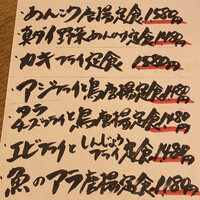 ・あんこう唐揚定食1580円
・真ダイ野菜あんかけ定食1480円
・カキフライ定食 1580円
・アジフライと鳥唐揚定食1480円
・タラチーズフライと鳥唐揚定食1480円
・エビフライとしんじょうフライ定食1480円
・魚のアラ唐揚定食1180円